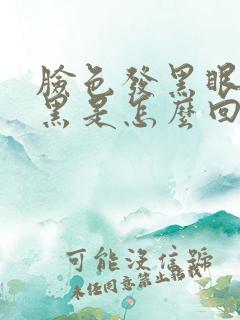 臉色發黑眼
黑是怎麼回
可能沒信號
未經同意禁止轉載